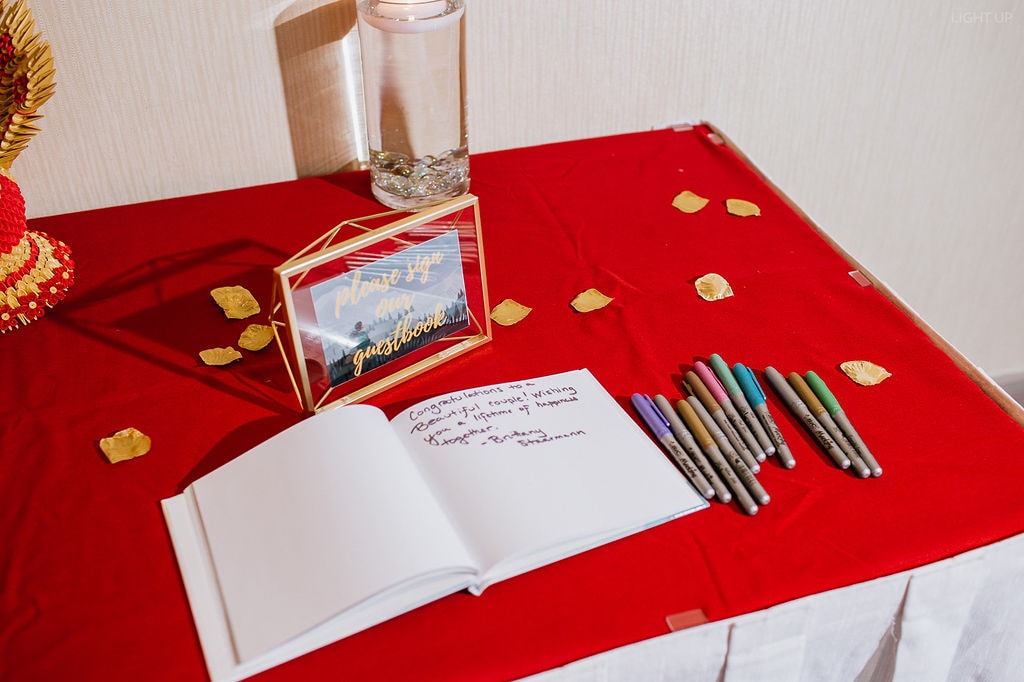 LIGHT UP
please sign
our
guestbook
Congratulations to a
Beautiful couple! Wishing
you a lifetime of happiness
together.
- Brittany